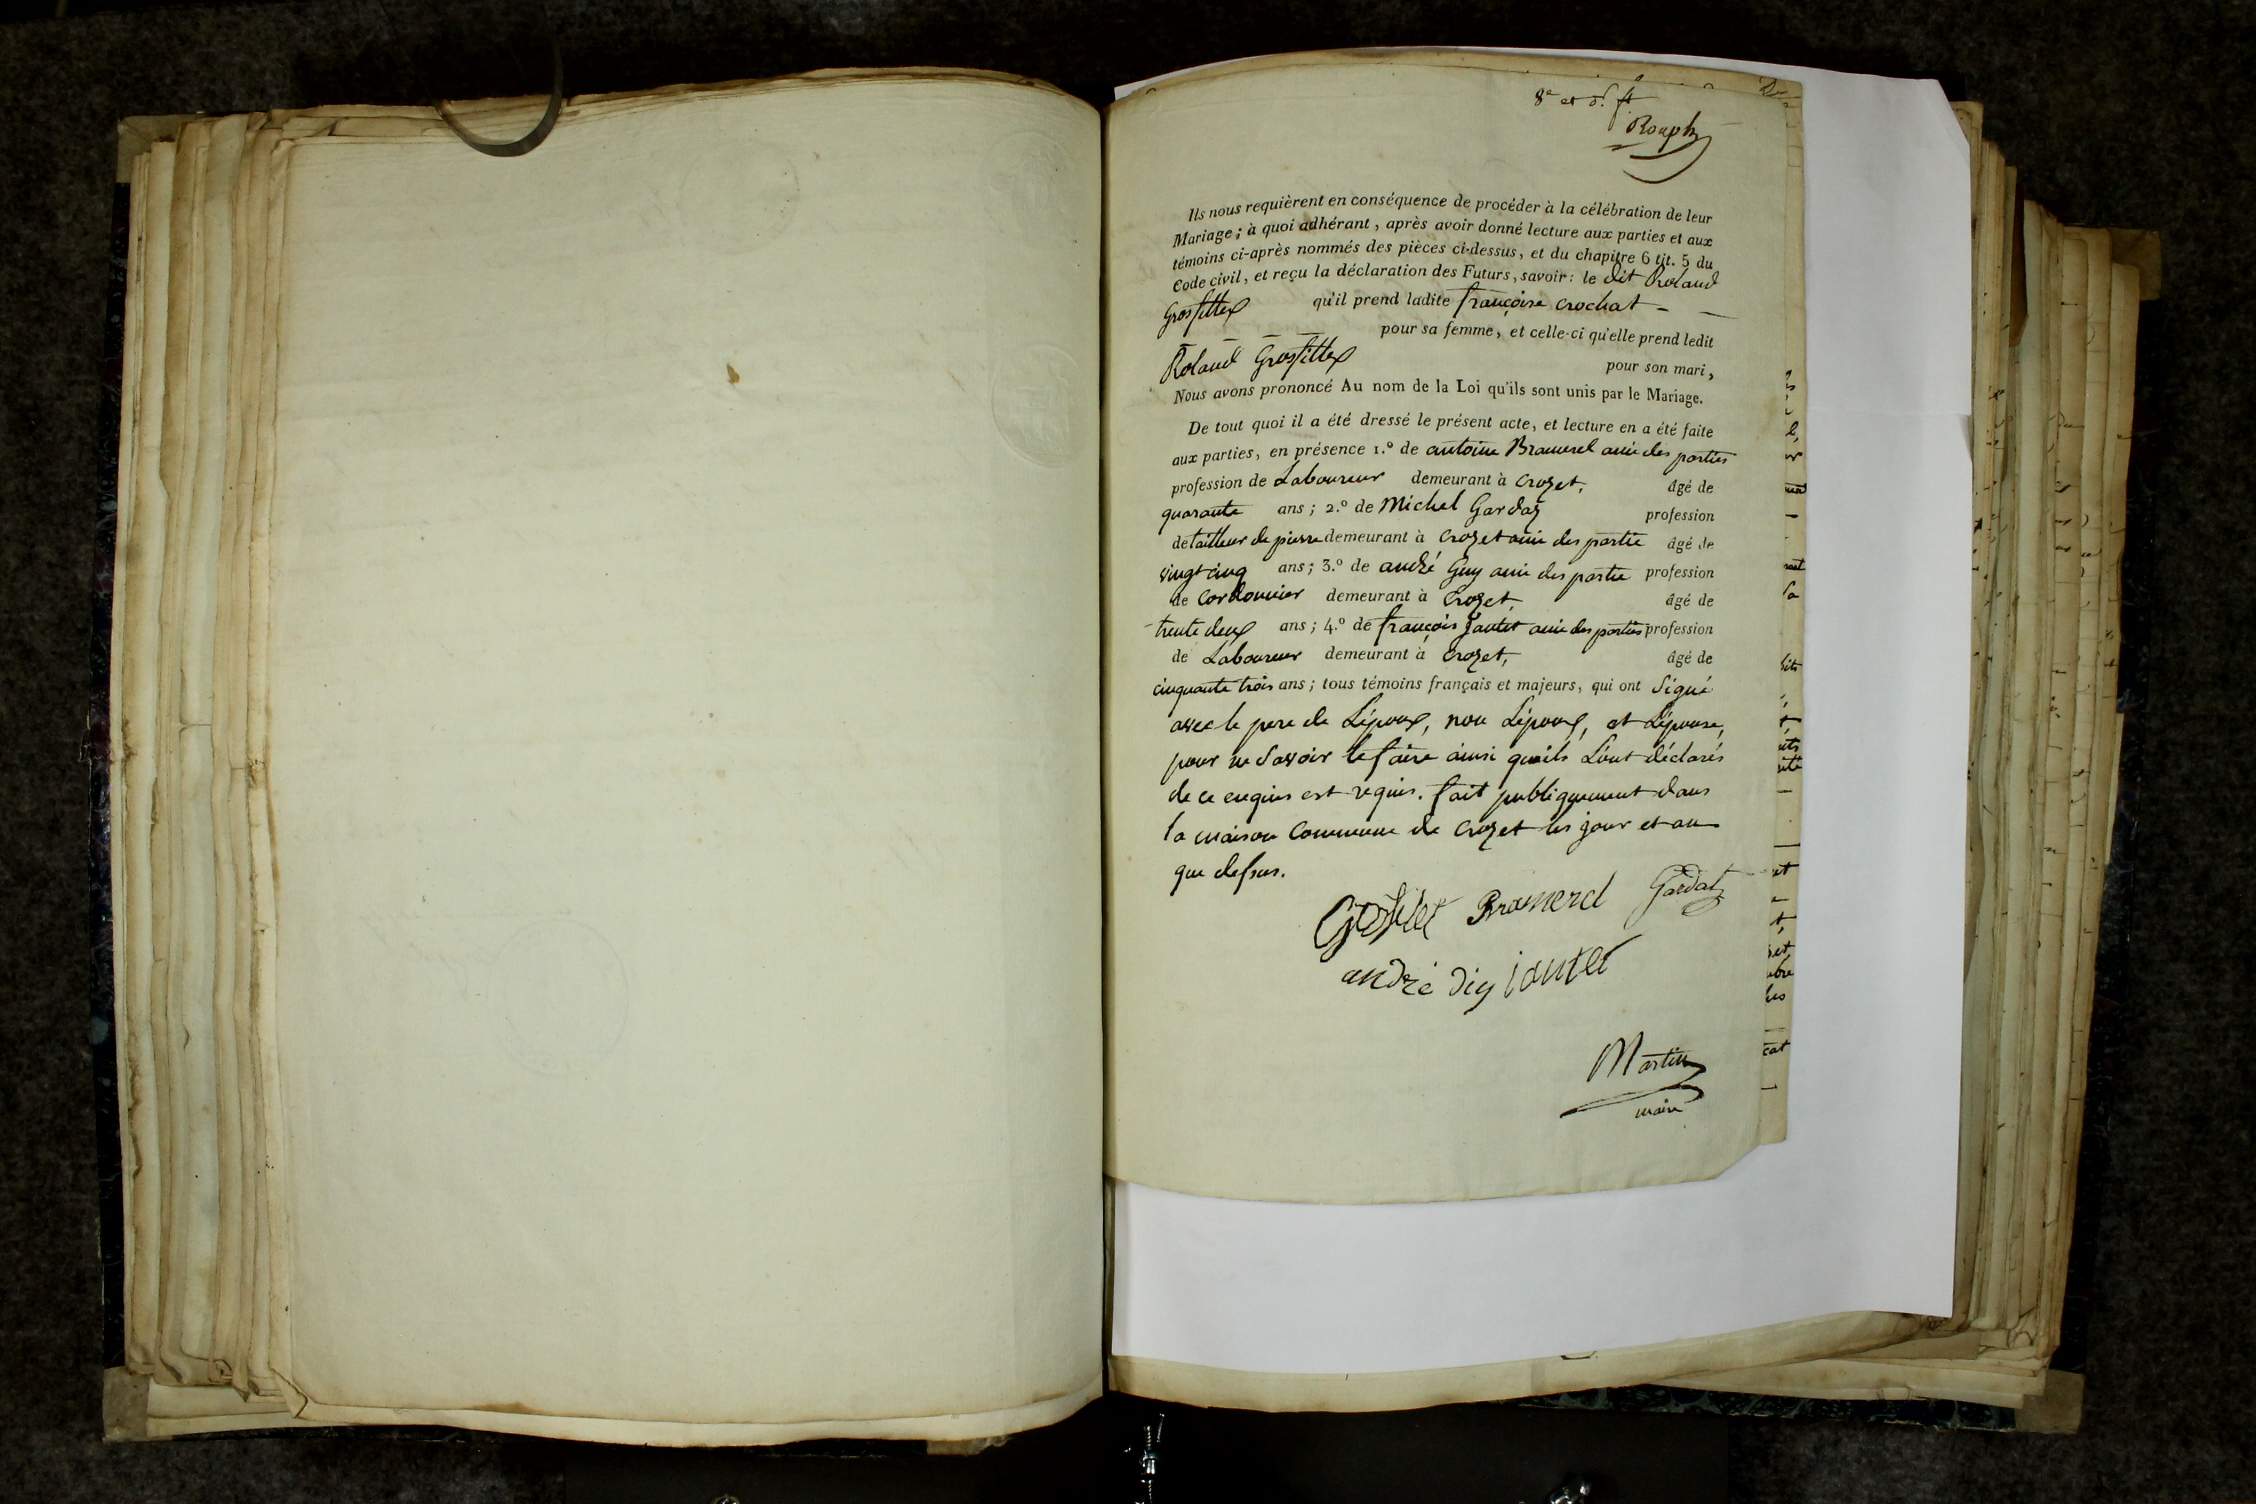 8e et d.r ft
Rouph
Ils nous requièrent en conséquence de procéder à la célébration de leur
Mariage ; à quoi adhérant, après avoir donné lecture aux parties et aux
témoins ci-après nommés des pièces ci-dessus, et du chapitre 6 tit. 5 du
Code civil, et reçu la déclaration des Futurs, savoir : le dit Roland
Grosfillex qu'il prend ladite françoise crochat -
pour sa femme, et celle-ci qu'elle prend ledit
Roland Grosfillex pour son mari,
Nous avons prononcé Au nom de la Loi qu'ils sont unis par le Mariage.
De tout quoi il a été dressé le présent acte, et lecture en a été faite
aux parties, en présence 1.º de antoine Bramerel amie des parties
profession de Laboureur demeurant à Crozet, âgé de
quarante ans ; 2.º de Michel Gardaz profession
de tailleur de pierre demeurant à Crozet amie des partie âgé de
vingt cinq ans ; 3.º de andré Guy amie des partie profession
de Cordonnier demeurant à Crozet, âgé de
trente deux ans ; 4.º de françois Jantet amie des parties profession
de Laboureur demeurant à Crozet, âgé de
cinquante trois ans ; tous témoins français et majeurs, qui ont Signé
avec le pere de Lépoux, non Lépoux, et Lépouse,
pour ne Savoir le faire ainsi quils L'ont déclarés
de ce enquis est requis. fait publiquement dans
la maison Commune de Crozet les jour et an
que dessus.
Grosfilet Bramerel Gardaz
andré Guy jantet
Martin
maire